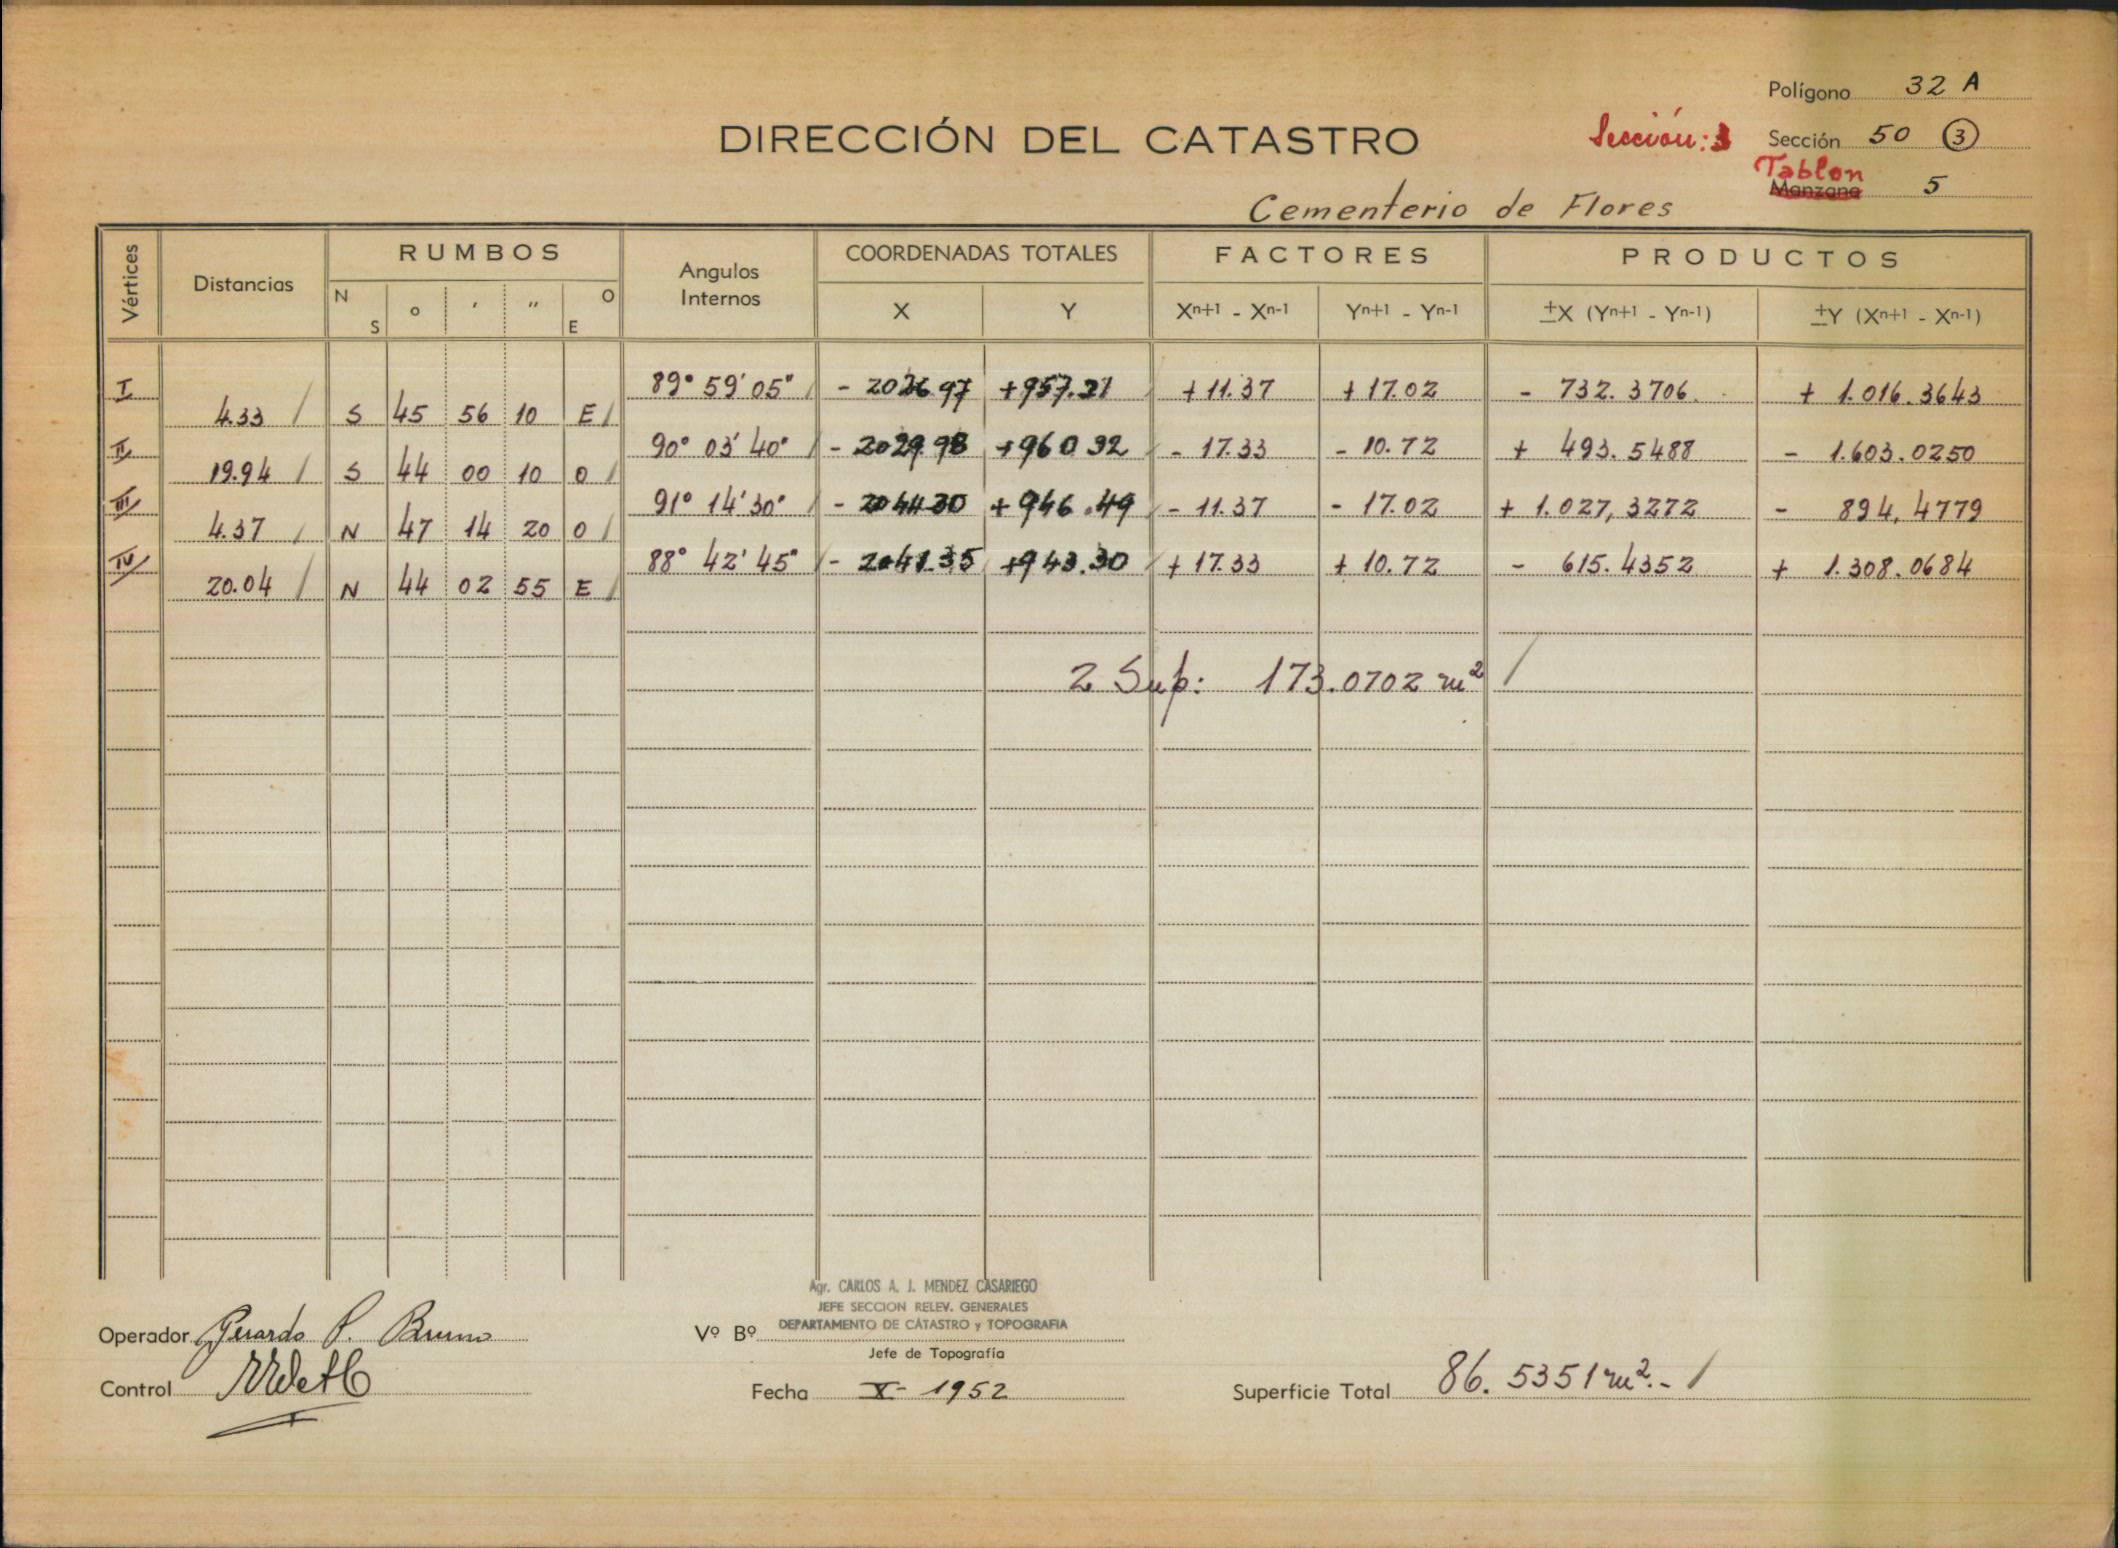 Polígono 32 A
DIRECCIÓN DEL CATASTRO
Sección: 3 Sección 50 ③
Tablon
Manzana 5
Cementerio de Flores
Vértices Distancias RUMBOS Angulos Internos COORDENADAS TOTALES FACTORES PRODUCTOS
N S ° ' " O E X Y Xⁿ⁺¹ - Xⁿ⁻¹ Yⁿ⁺¹ - Yⁿ⁻¹ ±X (Yⁿ⁺¹ - Yⁿ⁻¹) ±Y (Xⁿ⁺¹ - Xⁿ⁻¹)
I 89° 59' 05" - 2026.97 +957.21 + 11.37 + 17.02 - 732.3706 + 1.016.3643
4.33 S 45 56 10 E
II 90° 03' 40" - 2029.98 +960.32 - 17.33 - 10.72 + 493.5488 - 1.603.0250
19.94 S 44 00 10 O
III 91° 14' 30" - 2044.30 +946.49 - 11.37 - 17.02 + 1.027,3272 - 894,4779
4.37 N 47 14 20 O
IV 88° 42' 45" - 2041.35 +943.30 + 17.33 + 10.72 - 615.4352 + 1.308.0684
20.04 N 44 02 55 E
2 Sup: 173.0702 m²
Agr. CARLOS A. J. MENDEZ CASARIEGO
JEFE SECCION RELEV. GENERALES
DEPARTAMENTO DE CATASTRO y TOPOGRAFIA
Operador Gerardo P. Bruno Vº Bº
Jefe de Topografía
Control Fecha X - 1952 Superficie Total 86.5351 m².-